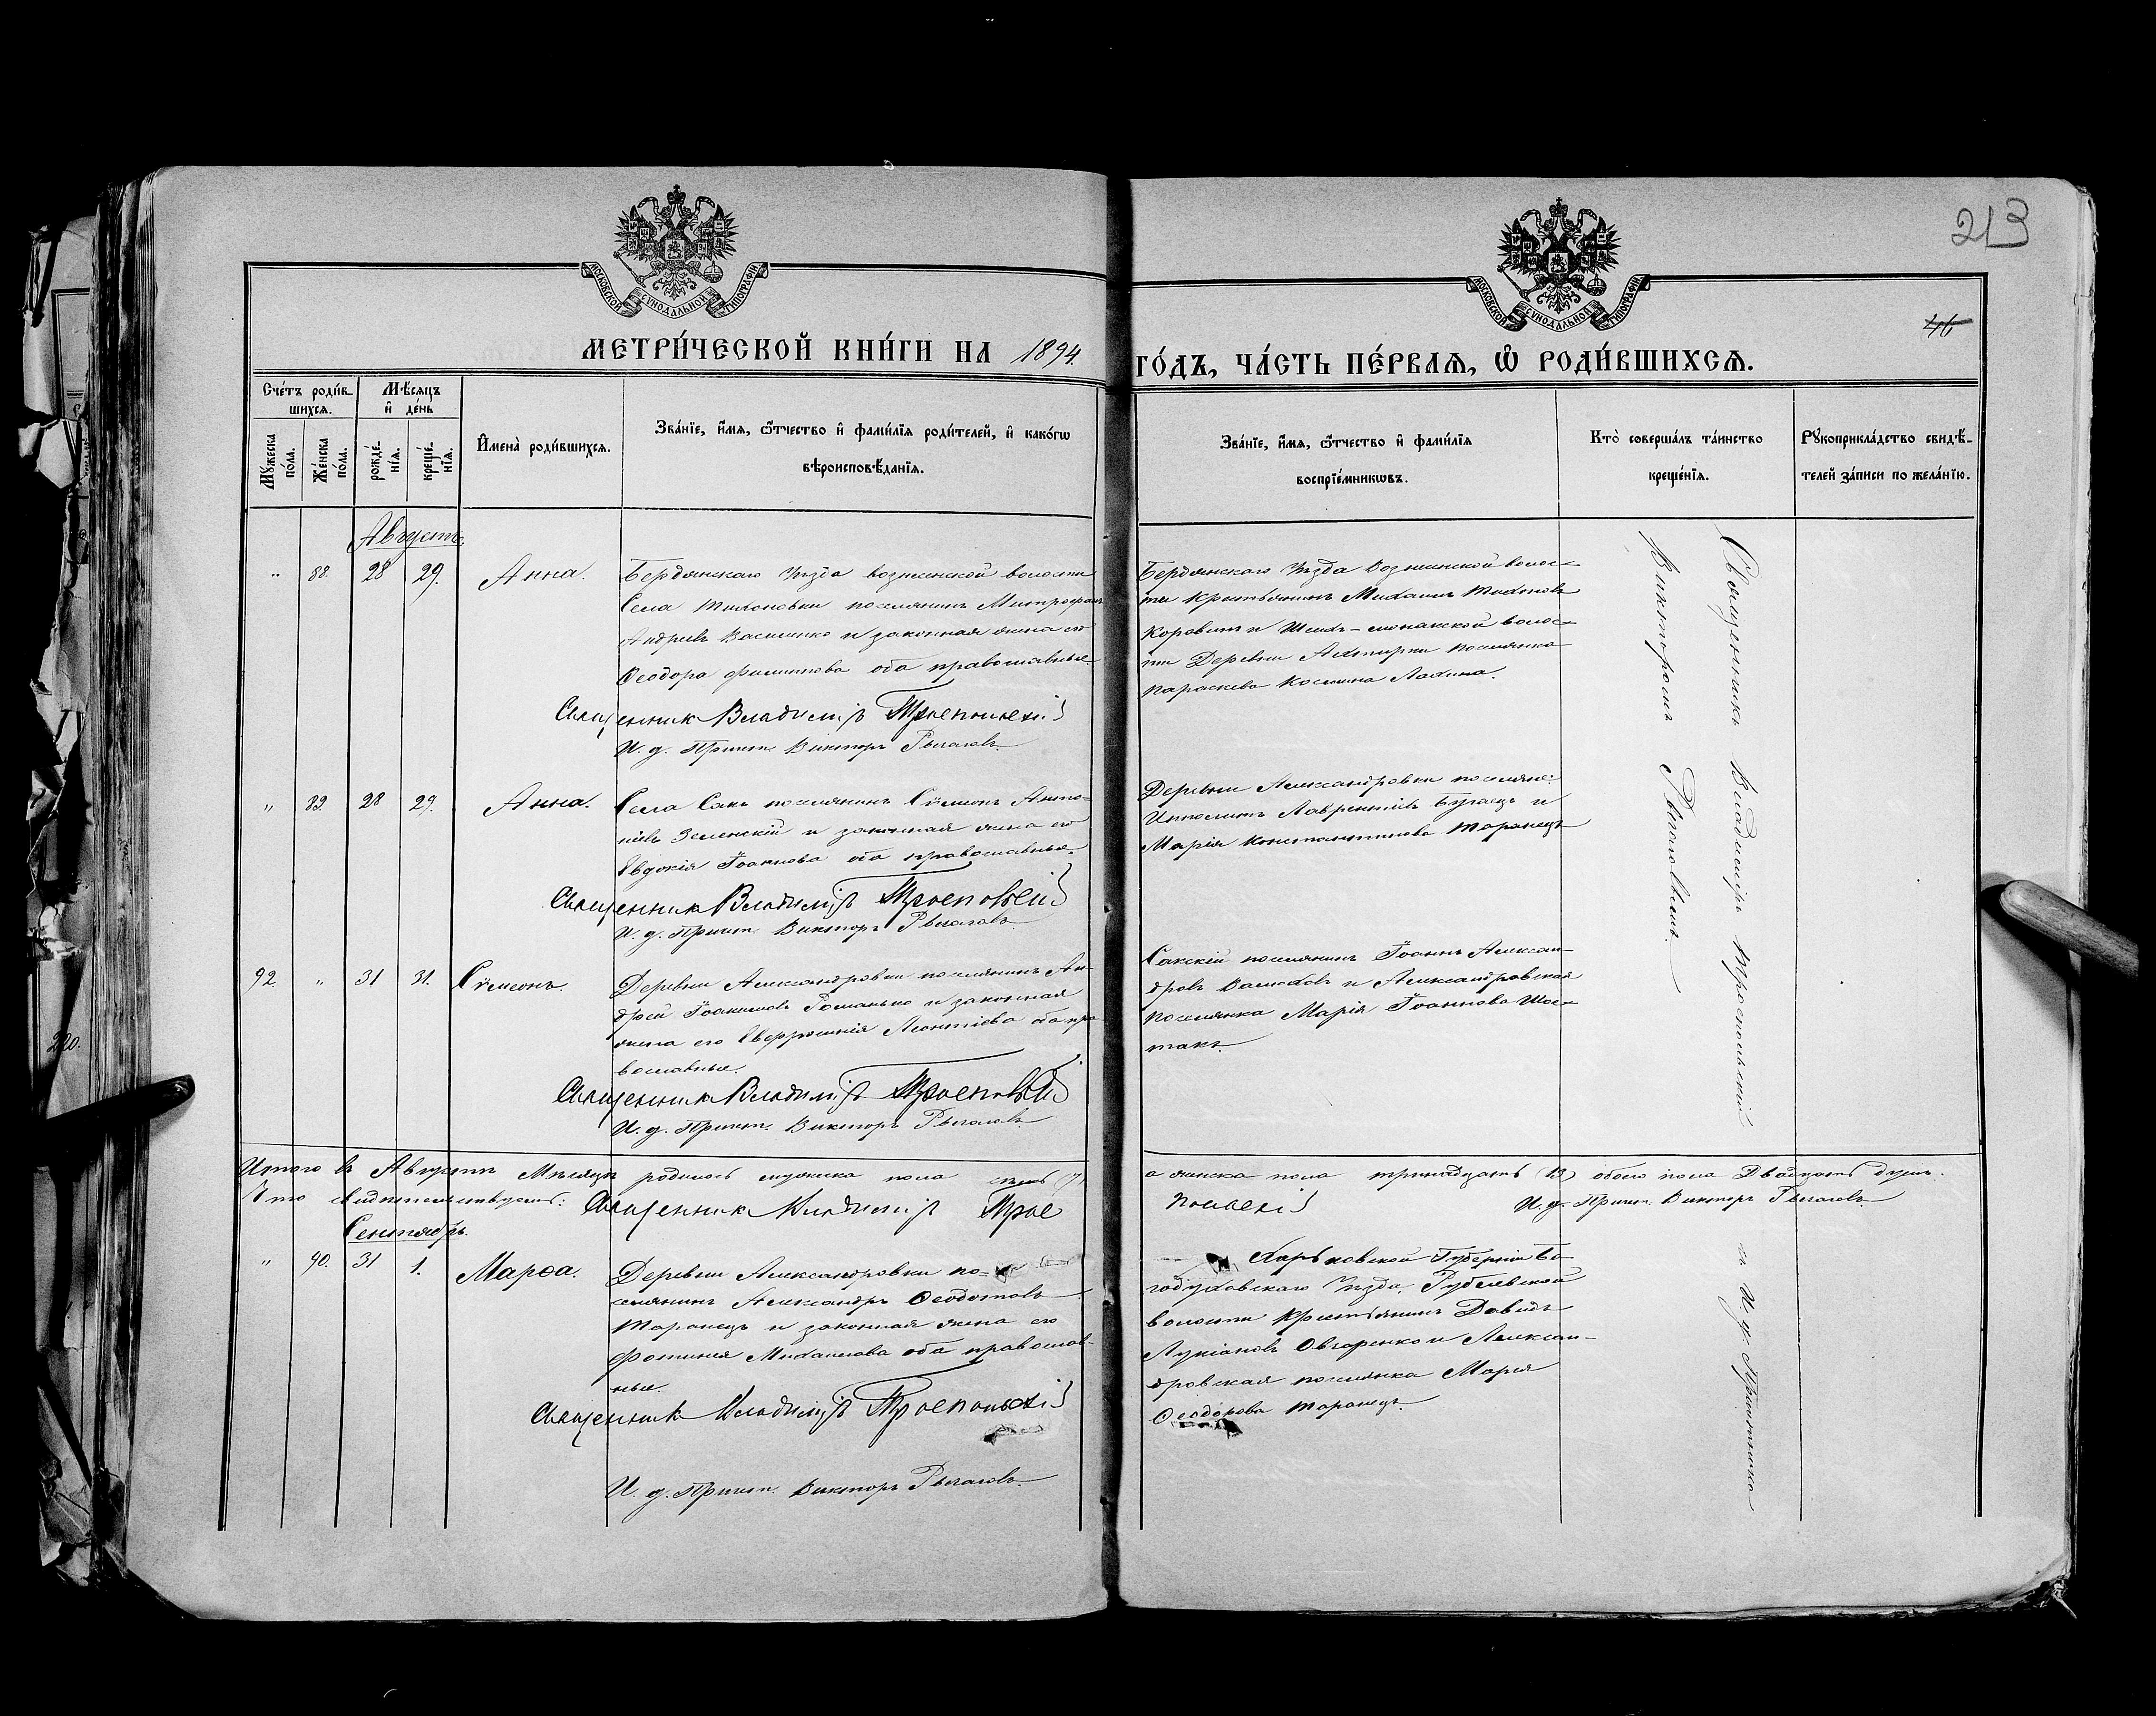 213
МОСКОВСКОЙ СУНОДАЛЬНОЙ ТИПОГРАФІИ
МОСКОВСКОЙ СУНОДАЛЬНОЙ ТИПОГРАФІИ
46
МЕТРИ́ЧЕСКОЙ КНИ́ГИ НА 1894.
ГО́ДЪ, ЧА́СТЬ ПЕ́РВАЯ, Ѡ҆ РОДИ́ВШИХСЯ.
Сче́тъ роди́в
шихся.
Мꙋ́жеска по́ла.
Же́нска по́ла.
Мѣ́сяцъ
и҆ де́нь
рожде́нїя.
креще́нїя.
И҆мена̀ роди́вшихся.
Зва́нїе, и҆́мя, ѻ҆́тчество и҆ фами́лїя роди́телей, и҆ како́гѡ
вѣроисповѣ́данїя.
Зва́нїе, и҆́мя, ѻ҆́тчество и҆ фами́лїя
воспрїе́мникѡвъ.
Кто̀ соверша́лъ та́инство
креще́нїя.
Рꙋкоприкла́дство свидѣ́-
телей за́писи по жела́нїю.
Августъ.
" 88. 28 29. Анна.
Бердянскаго Уѣзда
волости
Села поселянинъ Митрофанъ
Андреевъ Василенко и законная жена его
Ѳеодора Филиппова оба православные
Священникъ Владиміръ Троепольскій
И. д. Причет. Викторъ Рычаговъ.
Бердянскаго Уѣзда волос-
ти Крестьянинъ Михаилъ
и волос-
ти Деревни поселянка
Параскева Косьмина
" 89. 28 29. Анна.
Села Саки поселянинъ Сѵмеонъ Анто-
ніевъ Зеленскій и законная жена его
Евдокія Іоаннова оба православные.
Священникъ Владиміръ Троепольскій
И. д. Причет. Викторъ Рычаговъ.
Деревни Александровки поселяне:
Ипполитъ Лаврентіевъ и
Марія Константинова Таранецъ
92. " 31 31. Сѵмеонъ.
Деревни Александровки поселянинъ Ан-
дрей Іоакимовъ Романько и законная
жена его Евфросинія Леонтіева оба пра
вославные.
Священникъ Владиміръ Троепольскій
И. д. Причет. Викторъ Рычаговъ.
Сакскій поселянинъ Іоаннъ Алексан-
дровъ и Александровская
поселянка Марія Іоаннова Шос-
такъ.
Священникъ Владиміръ Троепольскій
Викторомъ Рычаговымъ.
съ И. д. Причетника
Итого въ Августѣ Мѣсяцѣ родилось мужеска пола семь (7)
а женска пола тринадцать (13) обоего пола Двадцать душъ.
Что свидѣтельствуемъ: Священникъ Владиміръ Трое
польскій
И. д. Причет. Викторъ Рычаговъ.
Сентябрь.
" 90. 31 1. Марѳа.
Деревни Александровки по-
селянинъ Александръ Ѳеодотовъ
Таранецъ и законная жена его
Фотинія Михаилова оба православ-
ные.
Священникъ Владиміръ Троепольскій
И. д. Причет. Викторъ Рычаговъ.
Харьковской Губерніи Бо-
годуховскаго Уѣзда, Рублевской
волости Крестьянинъ Давидъ
Лукіановъ Овчаренко и Алексан-
дровская поселянка Марія
Ѳеодорова Таранецъ.
220.